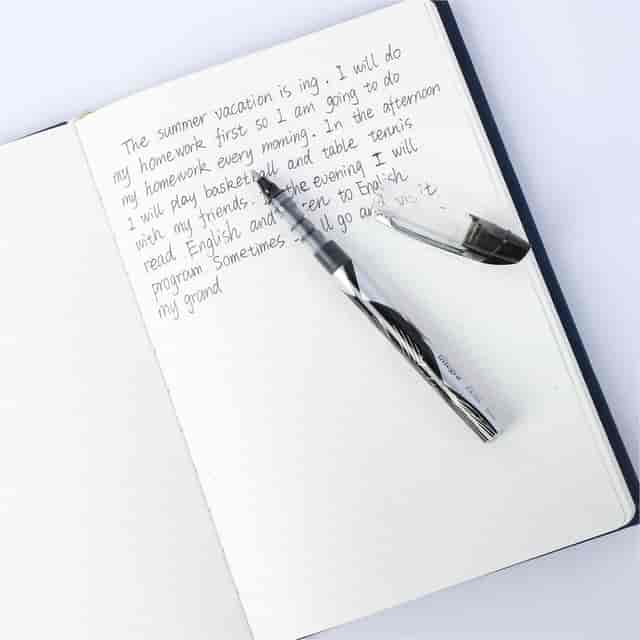 The summer vacation is ing. I will do
my homework first so I am going to do
my homework every morning. In the afternoon
I will play basketball and table tennis
with my friends. the evening I will
read English and listen to English
program Sometimes I will go and visit
my grand